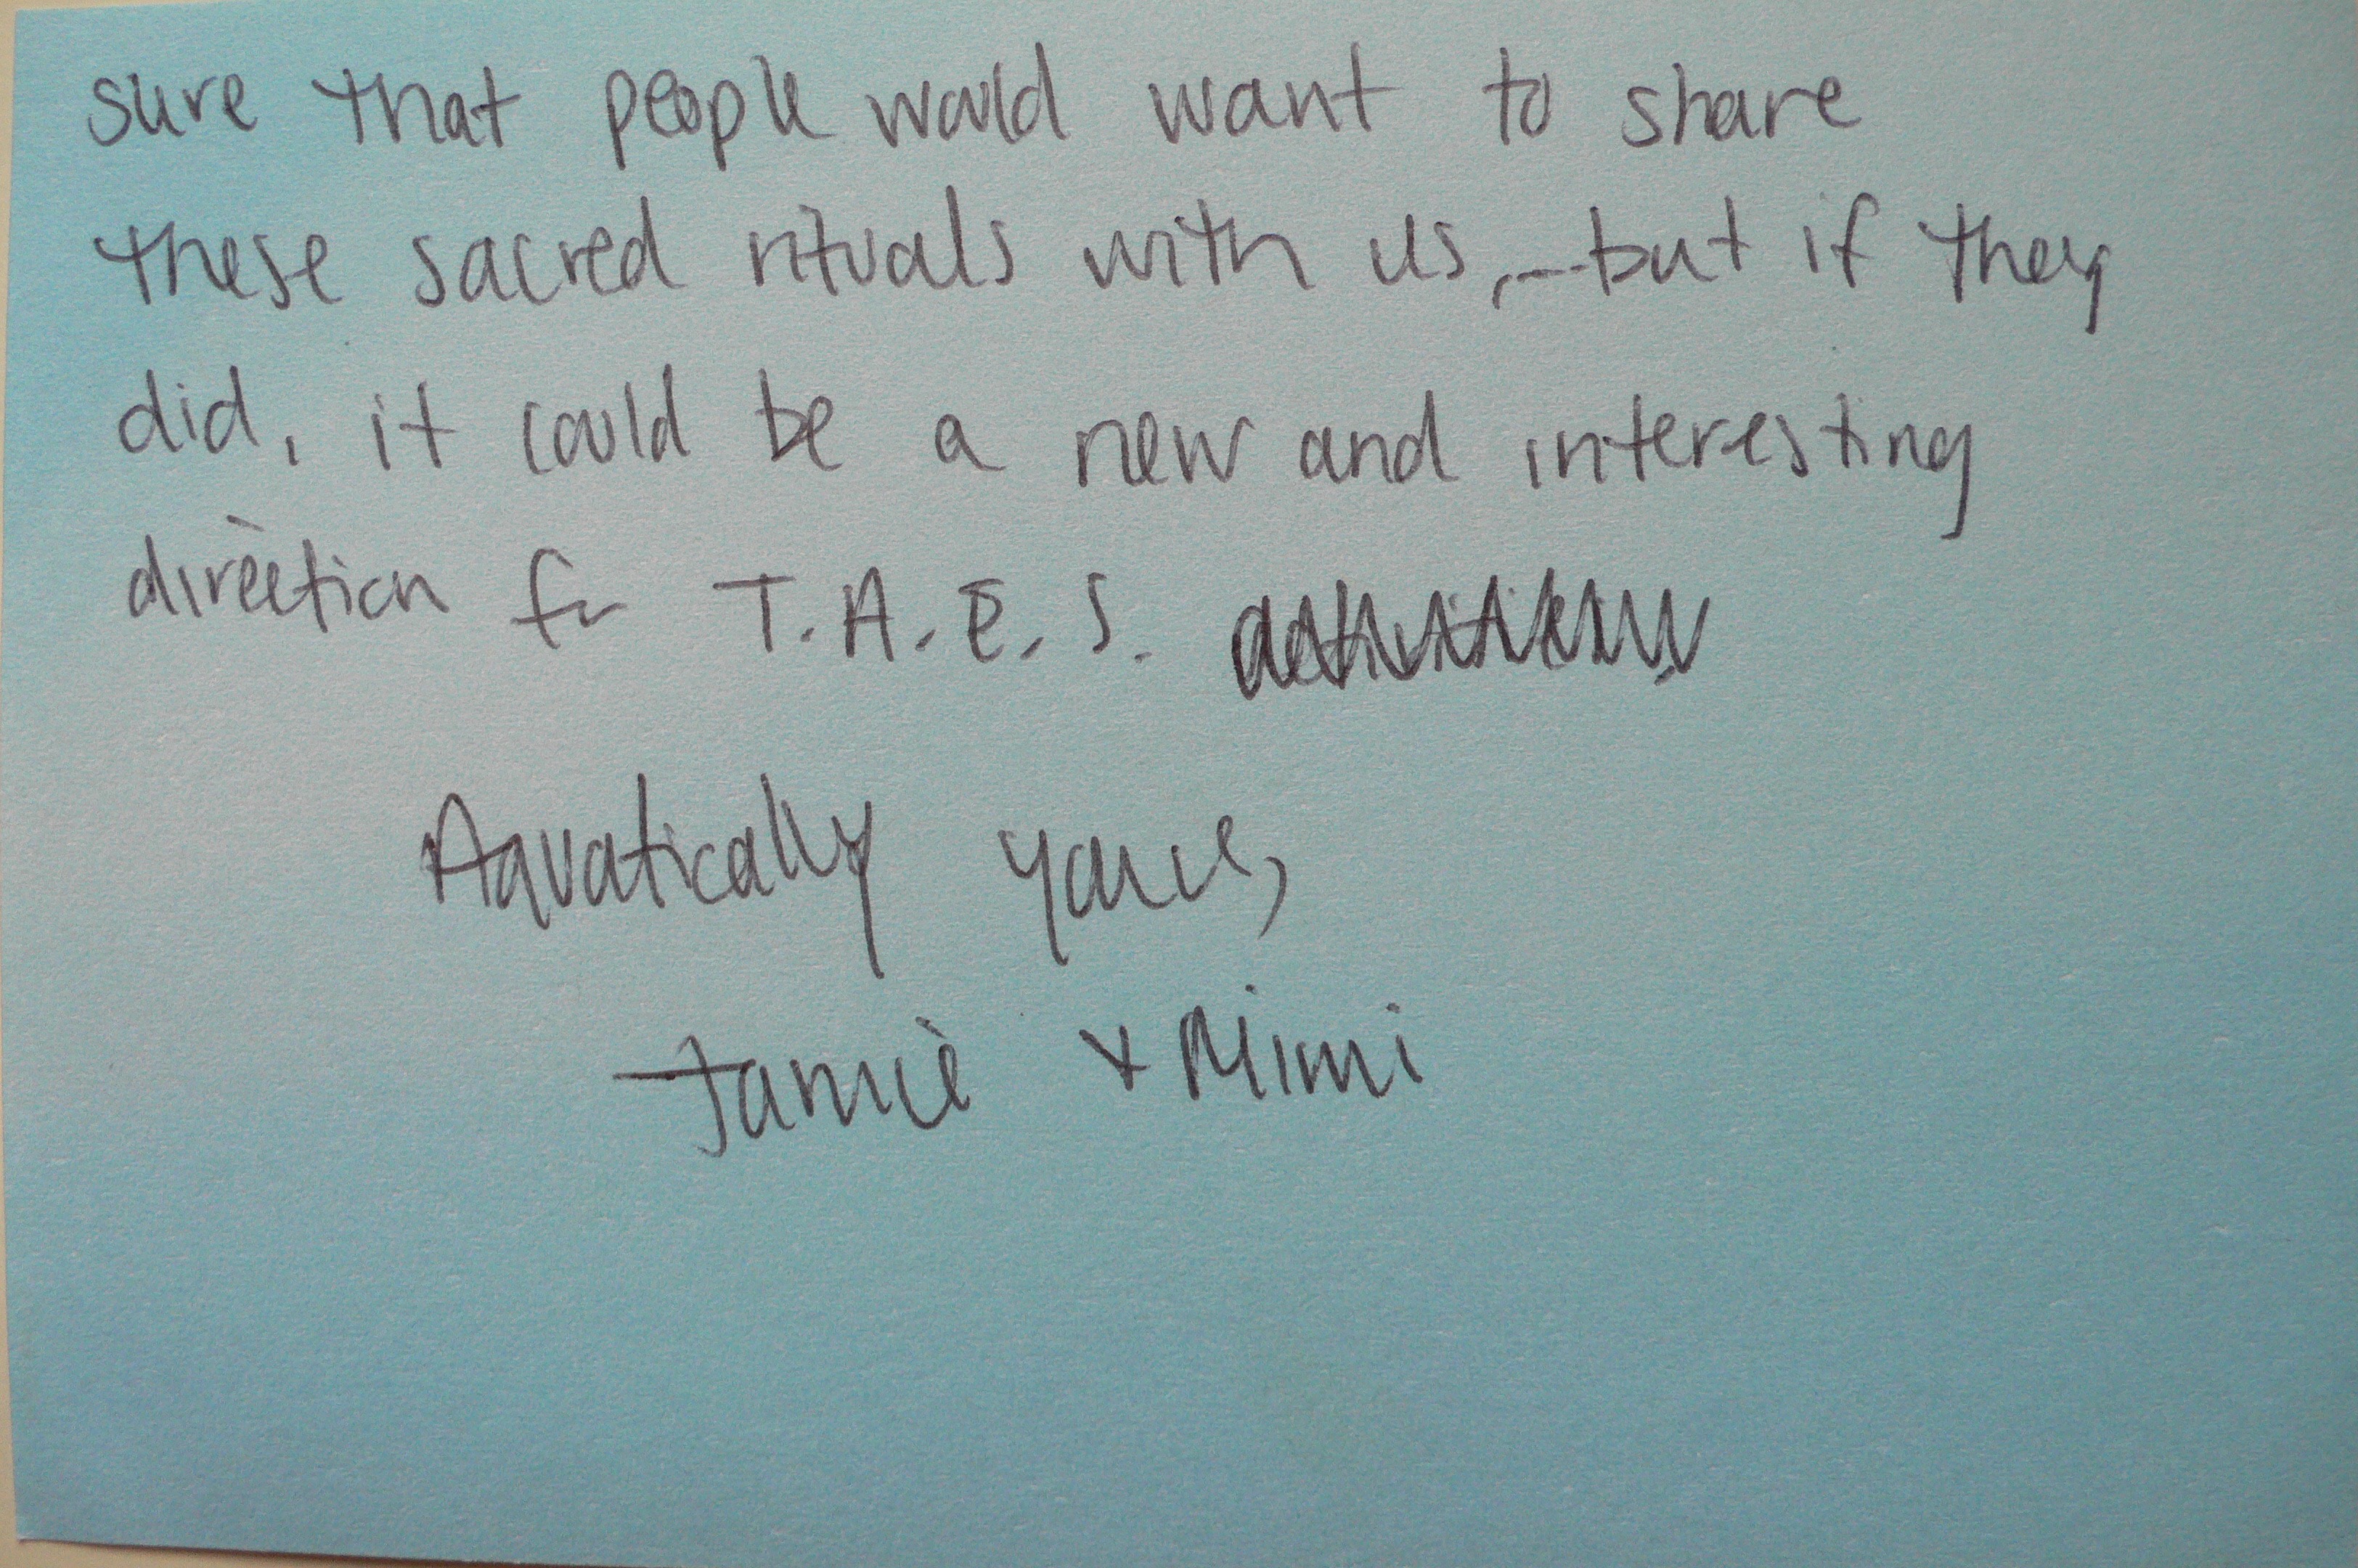 sure that people would want to share
these sacred rituals with us, - but if they
did, it could be a new and interesting
direction for T.A.E.S.
Aquatically yours,
Jamie + Mimi